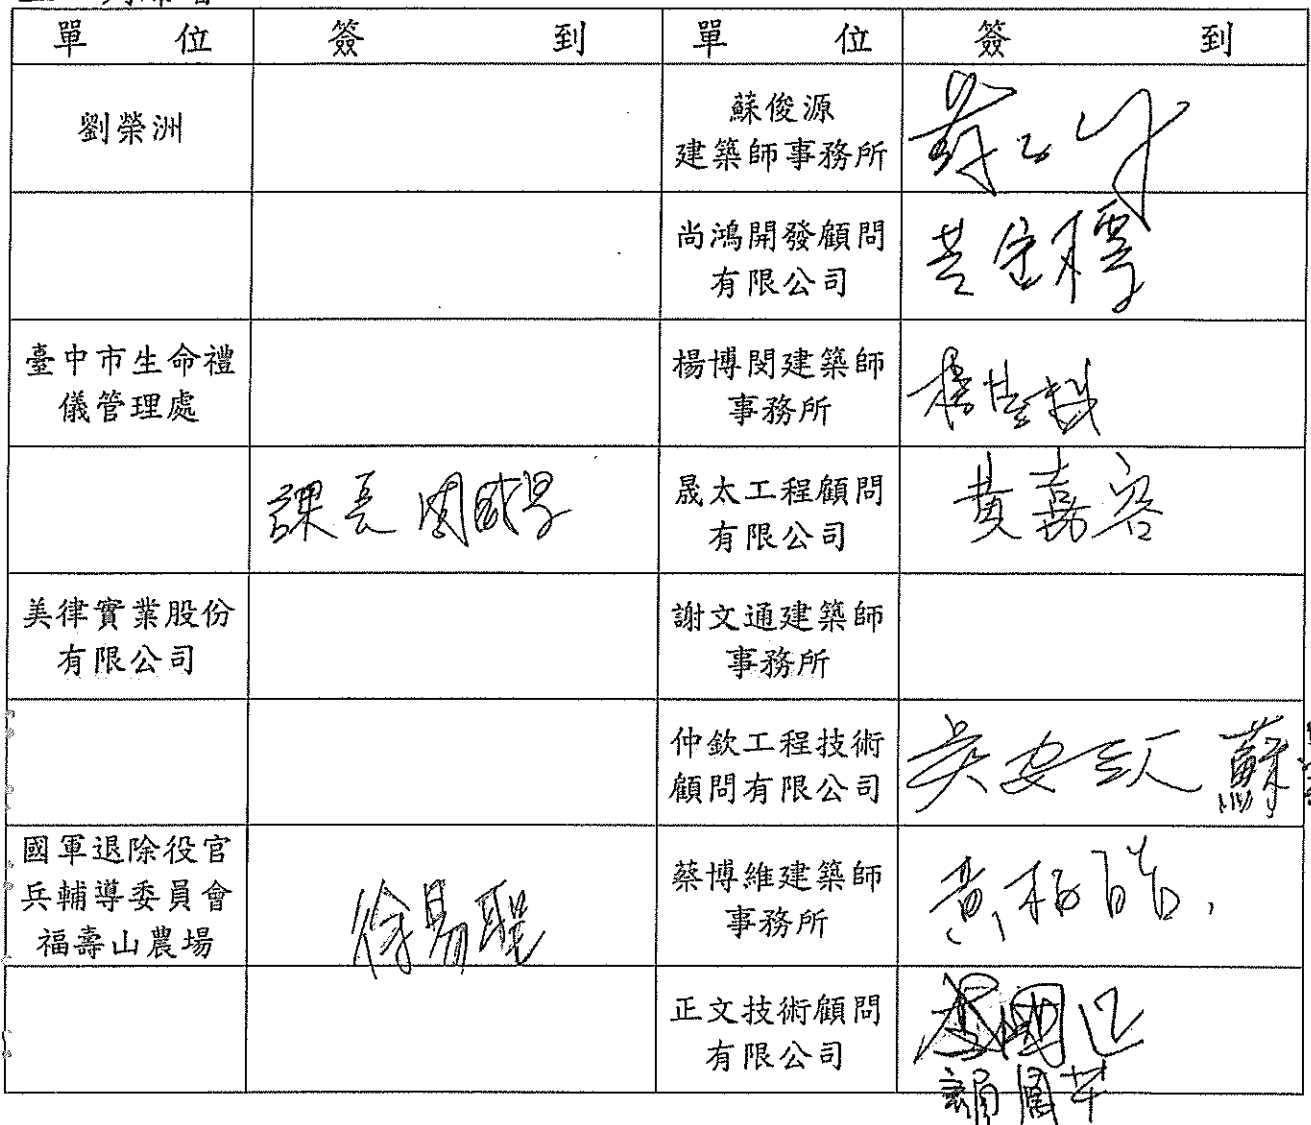 單位 簽到 單位 簽到
劉榮洲
蘇俊源
建築師事務所
尚鴻開發顧問
有限公司
臺中市生命禮
儀管理處
楊博閔建築師
事務所
課長
晟太工程顧問
有限公司
黃嘉容
美律實業股份
有限公司
謝文通建築師
事務所
仲欽工程技術
顧問有限公司
蘇
國軍退除役官
兵輔導委員會
福壽山農場
徐易聖
蔡博維建築師
事務所
正文技術顧問
有限公司